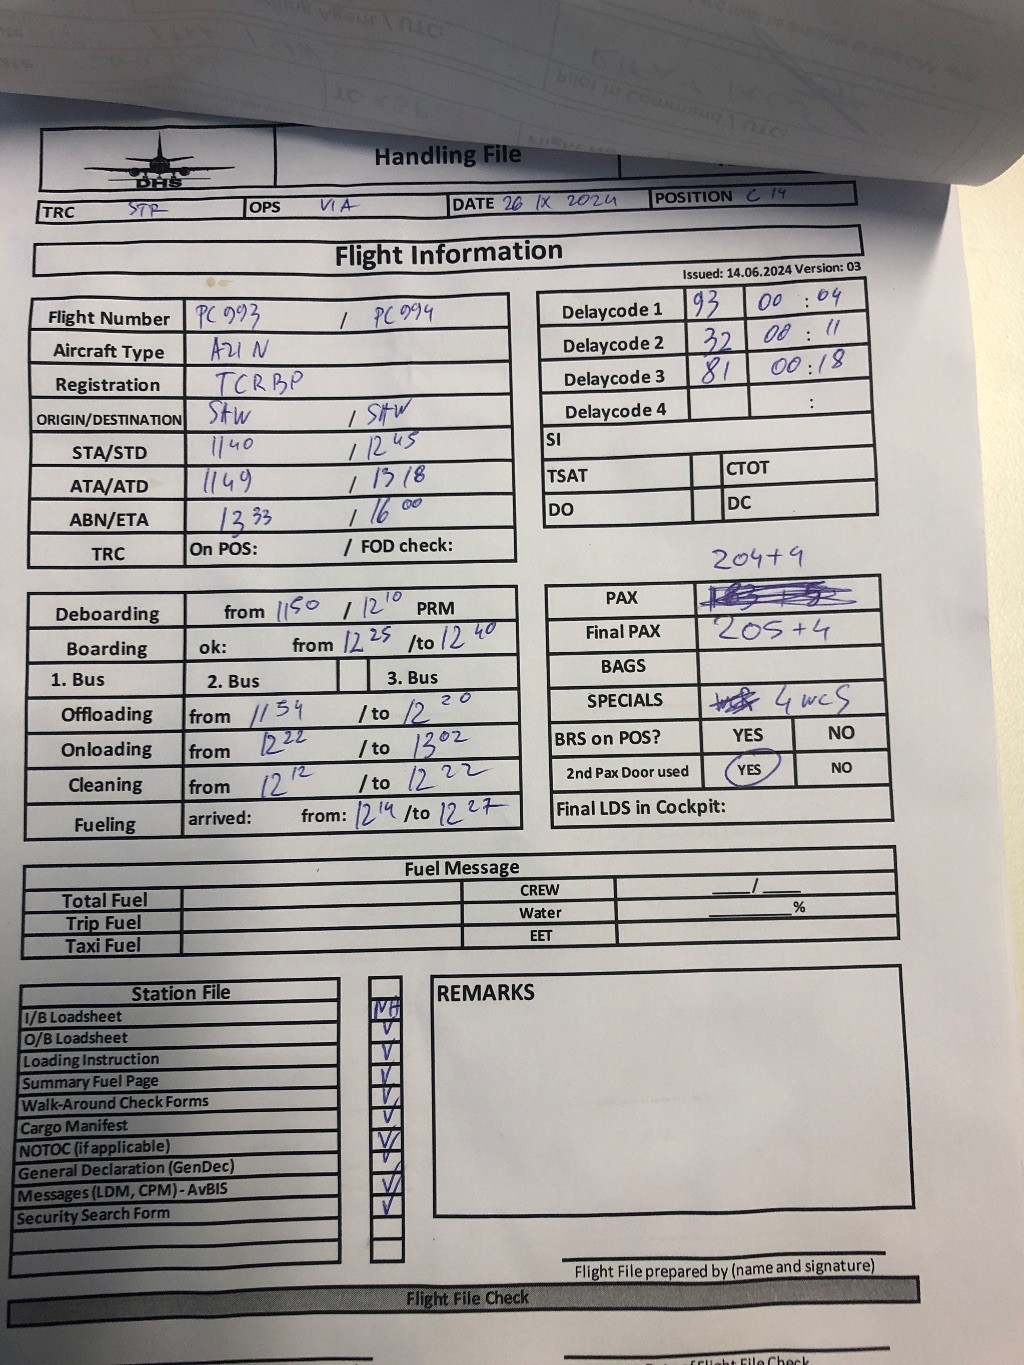 DHS
Handling File
TRC STR OPS VIA DATE 26 IX 2024 POSITION C 14
Flight Information
Issued: 14.06.2024 Version: 03
Flight Number PC 993 / PC 994
Aircraft Type A21 N
Registration TCRBP
ORIGIN/DESTINATION SAW / SAW
STA/STD 1140 / 1245
ATA/ATD 1149 / 1318
ABN/ETA 1333 / 1600
TRC On POS: / FOD check:
Delaycode 1 93 00 : 04
Delaycode 2 32 00 : 11
Delaycode 3 81 00:18
Delaycode 4 :
SI
TSAT CTOT
DO DC
Deboarding from 1150 / 1210 PRM
Boarding ok: from 1225 /to 1240
1. Bus 2. Bus 3. Bus
Offloading from 1154 / to 1220
Onloading from 1222 / to 1302
Cleaning from 1212 / to 1222
Fueling arrived: from: 1214 /to 1227
204+4
PAX
Final PAX 205+4
BAGS
SPECIALS 4 WCS
BRS on POS? YES NO
2nd Pax Door used YES NO
Final LDS in Cockpit:
Fuel Message
Total Fuel CREW ___/___
Trip Fuel Water ______%
Taxi Fuel EET
Station File
I/B Loadsheet NA
O/B Loadsheet V
Loading Instruction V
Summary Fuel Page V
Walk-Around Check Forms V
Cargo Manifest V
NOTOC (if applicable) V
General Declaration (GenDec) V
Messages (LDM, CPM) - AvBIS V
Security Search Form V
REMARKS
Flight File prepared by (name and signature)
Flight File Check